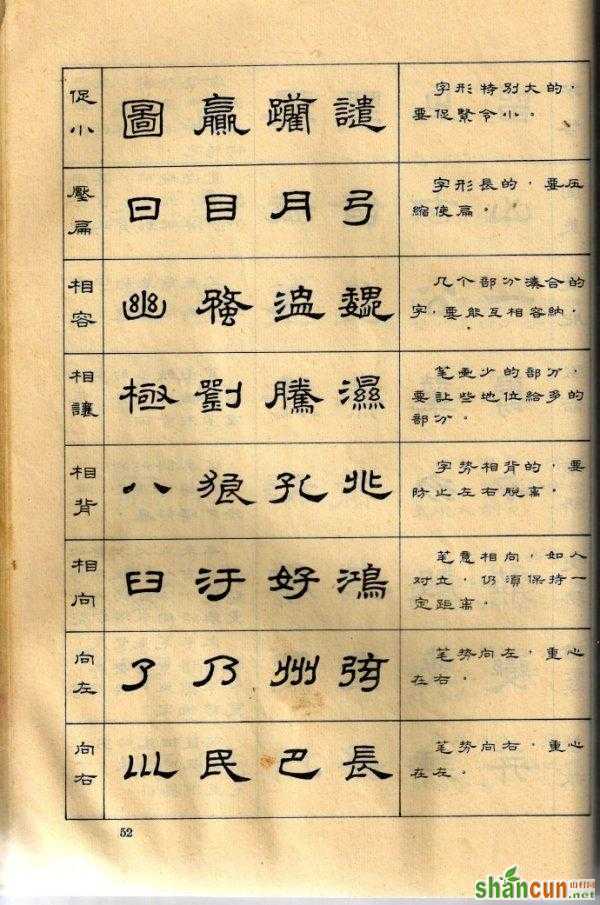 促
小
圖 贏 譴
字形特别大的，
要促緊令小。
壓
扁
日 目 月 弓
字形長的，要压
縮使扁。
相
容
幽 温 魏
几个部分湊合的
字，要能互相容納，
相
讓
極 劉 騰 濕
笔畫少的部分，
要让些地位給多的
部分。
相
背
八 狼 孔 兆
字势相背的，要
防止左右脫离。
相
向
臼 汙 好 鴻
笔意相向，如人
对立，仍須保持一
定距离。
向
左
了 乃 州 弦
笔势向左，重心
在右。
向
右
民 巴 長
笔势向右，重心
在左。
52
shancun
山村网
.net